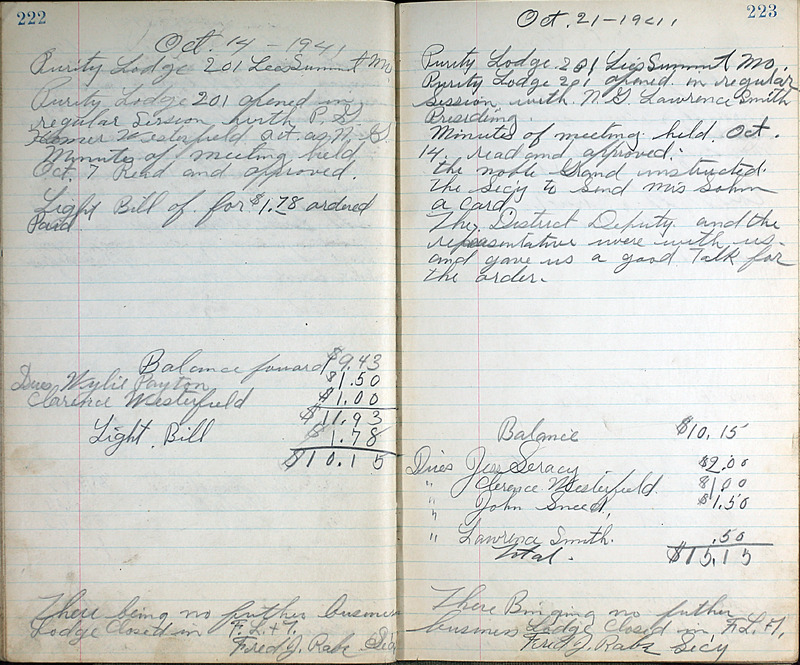 222
Oct. 14 - 1941,
Purity Lodge 201 Lees Summit Mo.
Purity Lodge 201 opened in
regular Session with P. G.
Homer Westerfield Act. as N. G.
Minutes of meeting held
Oct. 7 Read and approved.
Light Bill of for $1.78 ordered
Paid
Balance foward $9.43
Dues Wylie Payton $1.50
Clarence Westerfield $1.00
$11.93
Light Bill $1.78
$10.15
There being no further business
Lodge Closed in F. L. + T.
Fred J. Rabe Sec
223
Oct. 21 - 1941,
Purity Lodge 201 Lees Summit Mo.
Purity Lodge 201 opened in regular
session with N. G. Lawrence Smith
Presiding.
Minutes of meeting held Oct.
14, read and approved.
the noble Grand instructed
the Secy to Send Mrs Sohm
a card
The District Deputy and the
repesentative were with us
and gave us a good Talk for
the order.
Balance $10.15
Dues Jess Seracy $2.00
" Clerence Westerfield $1.00
" John Sneed, $1.50
"
" Lawrence Smith. .50
Total. $15.15
There Binging no futher
business Lodge Closed in, F. L. + T,
Fred J. Rabe Secy